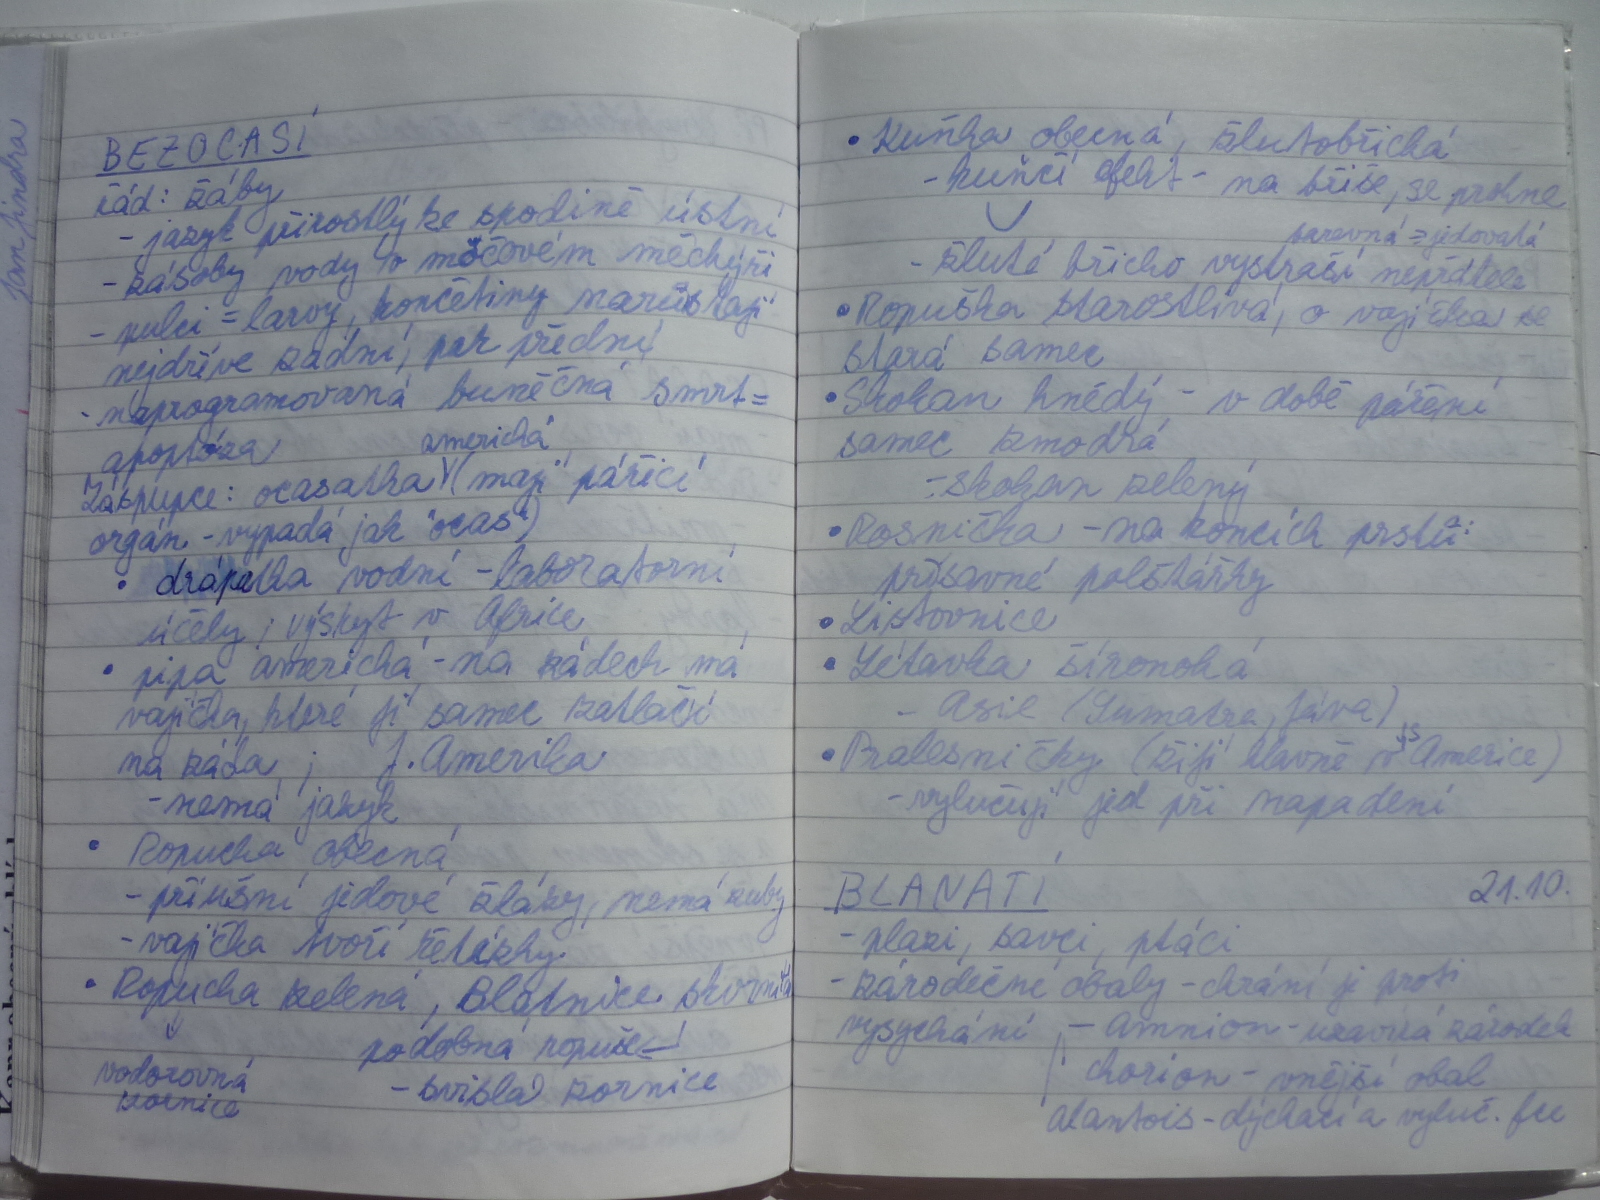 BEZOCASÍ
řád: žáby
- jazyk přirostlý ke spodině ústní
- zásoby vody v močovém měchýři
- pulci = larvy, končetiny narůstají
nejdříve zadní, pak přední
- naprogramovaná buněčná smrt =
apoptóza
americká
Zástupce: ocasatka (mají pářící
orgán - vypadá jak "ocas")
• drápatka vodní - laboratorní
účely; výskyt v Africe
• pipa americká - na zádech má
vajíčka, které jí samec zatlačí
na záda; J. Amerika
- nemá jazyk
• Ropucha obecná
- příušní jedové žlázy, nemá zuby
- vajíčka tvoří řetízky
• Ropucha zelená, Blatnice skvrnitá
podobna ropuše
vodorovná
zornice
- svislá zornice
• Kuňka obecná, žlutobřichá
- kuňčí efekt - na břiše, se prohne
barevná = jedovatá
- žluté břicho vystraší nepřítele
• Ropuška starostlivá, o vajíčka se
stará samec
• Skokan hnědý - v době páření
samec zmodrá
- skokan zelený
• Rosnička - na koncích prstů:
přísavné polštářky
• Listovnice
• Létavka šíronohá
- Asie (Sumatra, Jáva)
• Pralesničky (žijí hlavně v JS Americe)
- vylučují jed při napadení
BLANATÍ
21.10.
- plazi, savci, ptáci
- zárodečné obaly - chrání je proti
vysychání - amnion - uzavírá zárodek
chorion - vnější obal
alantois - dýchací a vyluč. fu
Jan Jindra